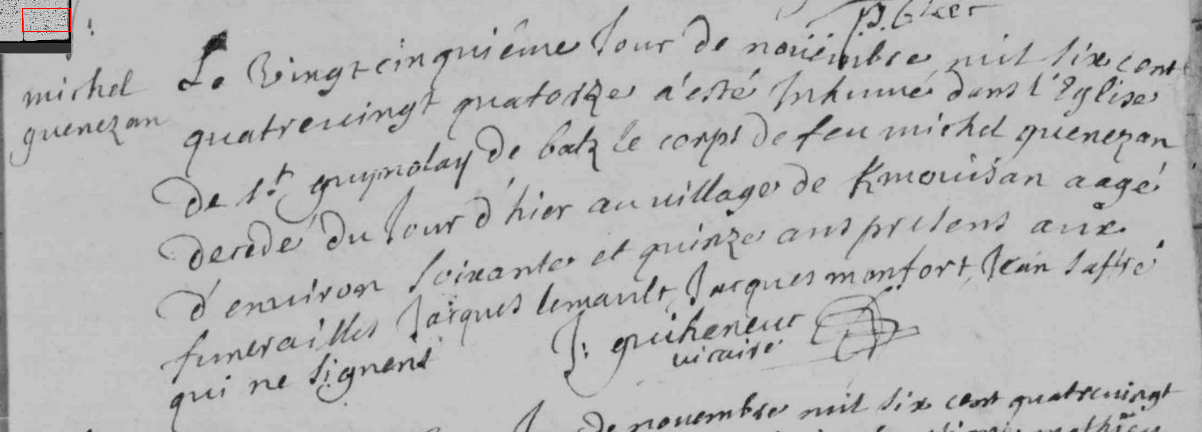 michel
quenezan
Le Vingt cinquiéme Jour de novembre mil six cent
quatrevingt quatorze a'esté Inhumé dans l'Eglise
de St guynolay de batz le corps de feu michel quenezan
decedé du Jour d'hier au village de Kmouisan aagé
d'environ soixante et quinze ans presens aux
funerailles Jacques lemault, Jacques monfort, Jean saffré
qui ne signent
J: guiheneuc
vicaire
de novembre mil six cent quatrevingt